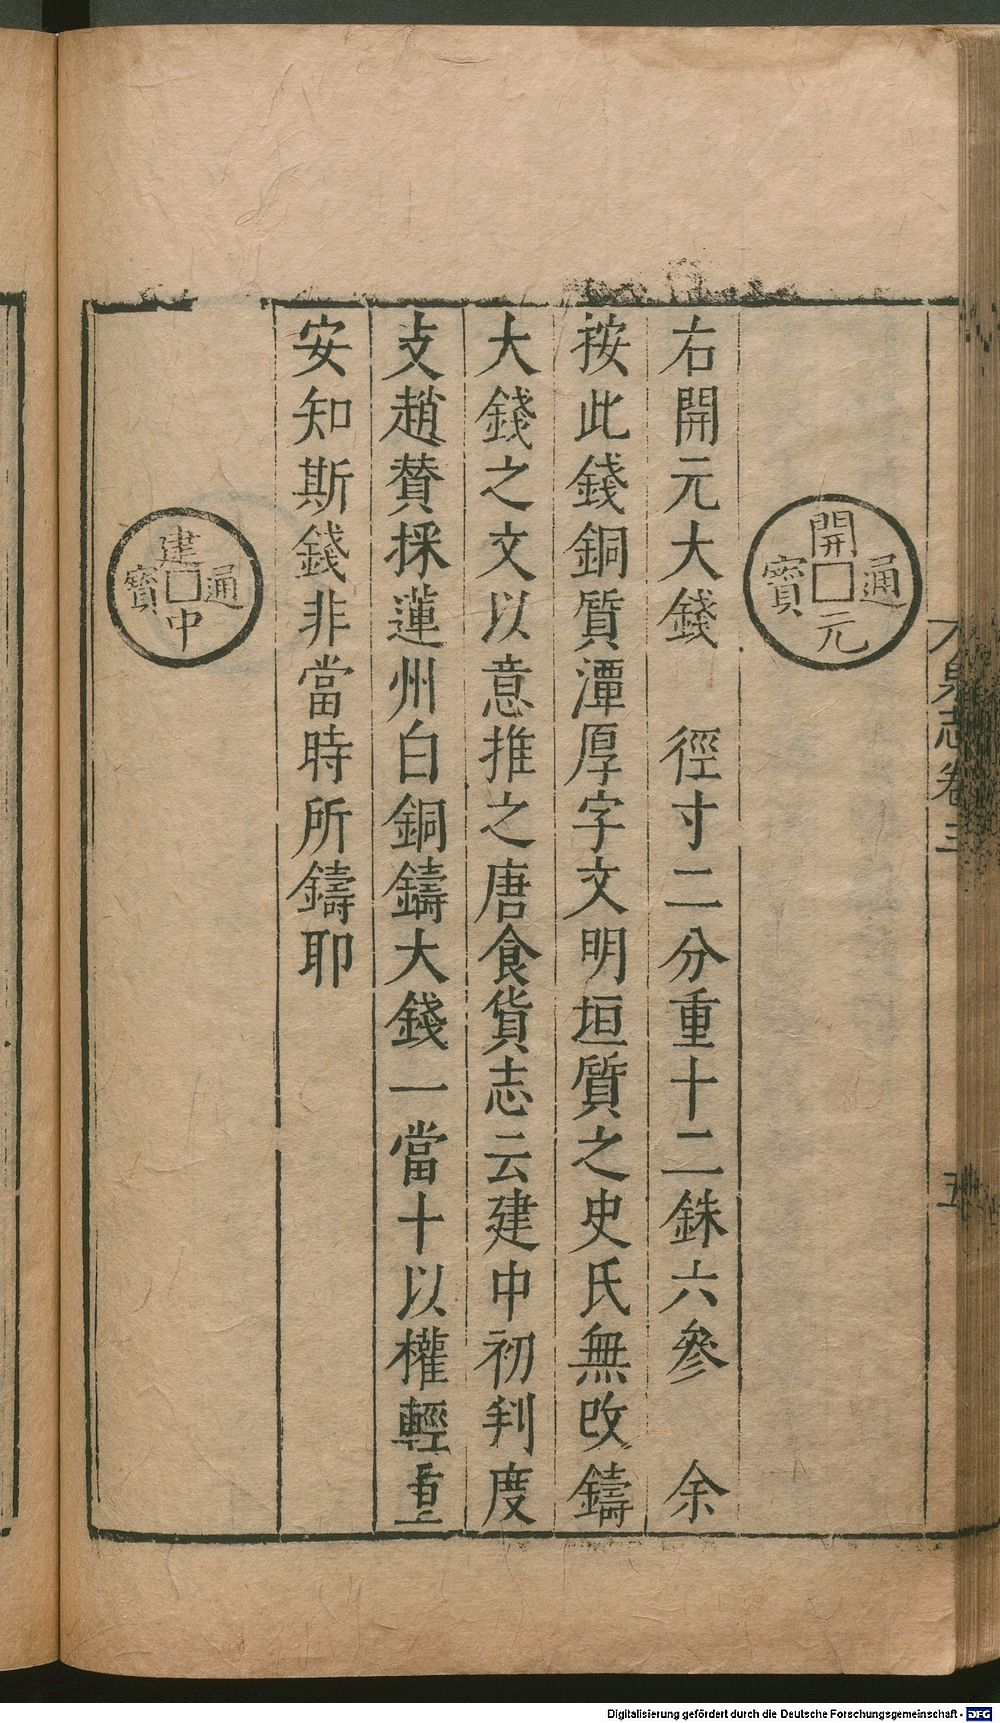 泉志卷三
五
開元通寶
右開元大錢 徑寸二分重十二銖六參 余
按此錢銅質渾厚字文明垣質之史氏無改鑄
大錢之文以意推之唐食貨志云建中初判度
支趙贊採蓮州白銅鑄大錢一當十以權輕重
安知斯錢非當時所鑄耶
建中通寶
Digitalisierung gefördert durch die Deutsche Forschungsgemeinschaft - DFG